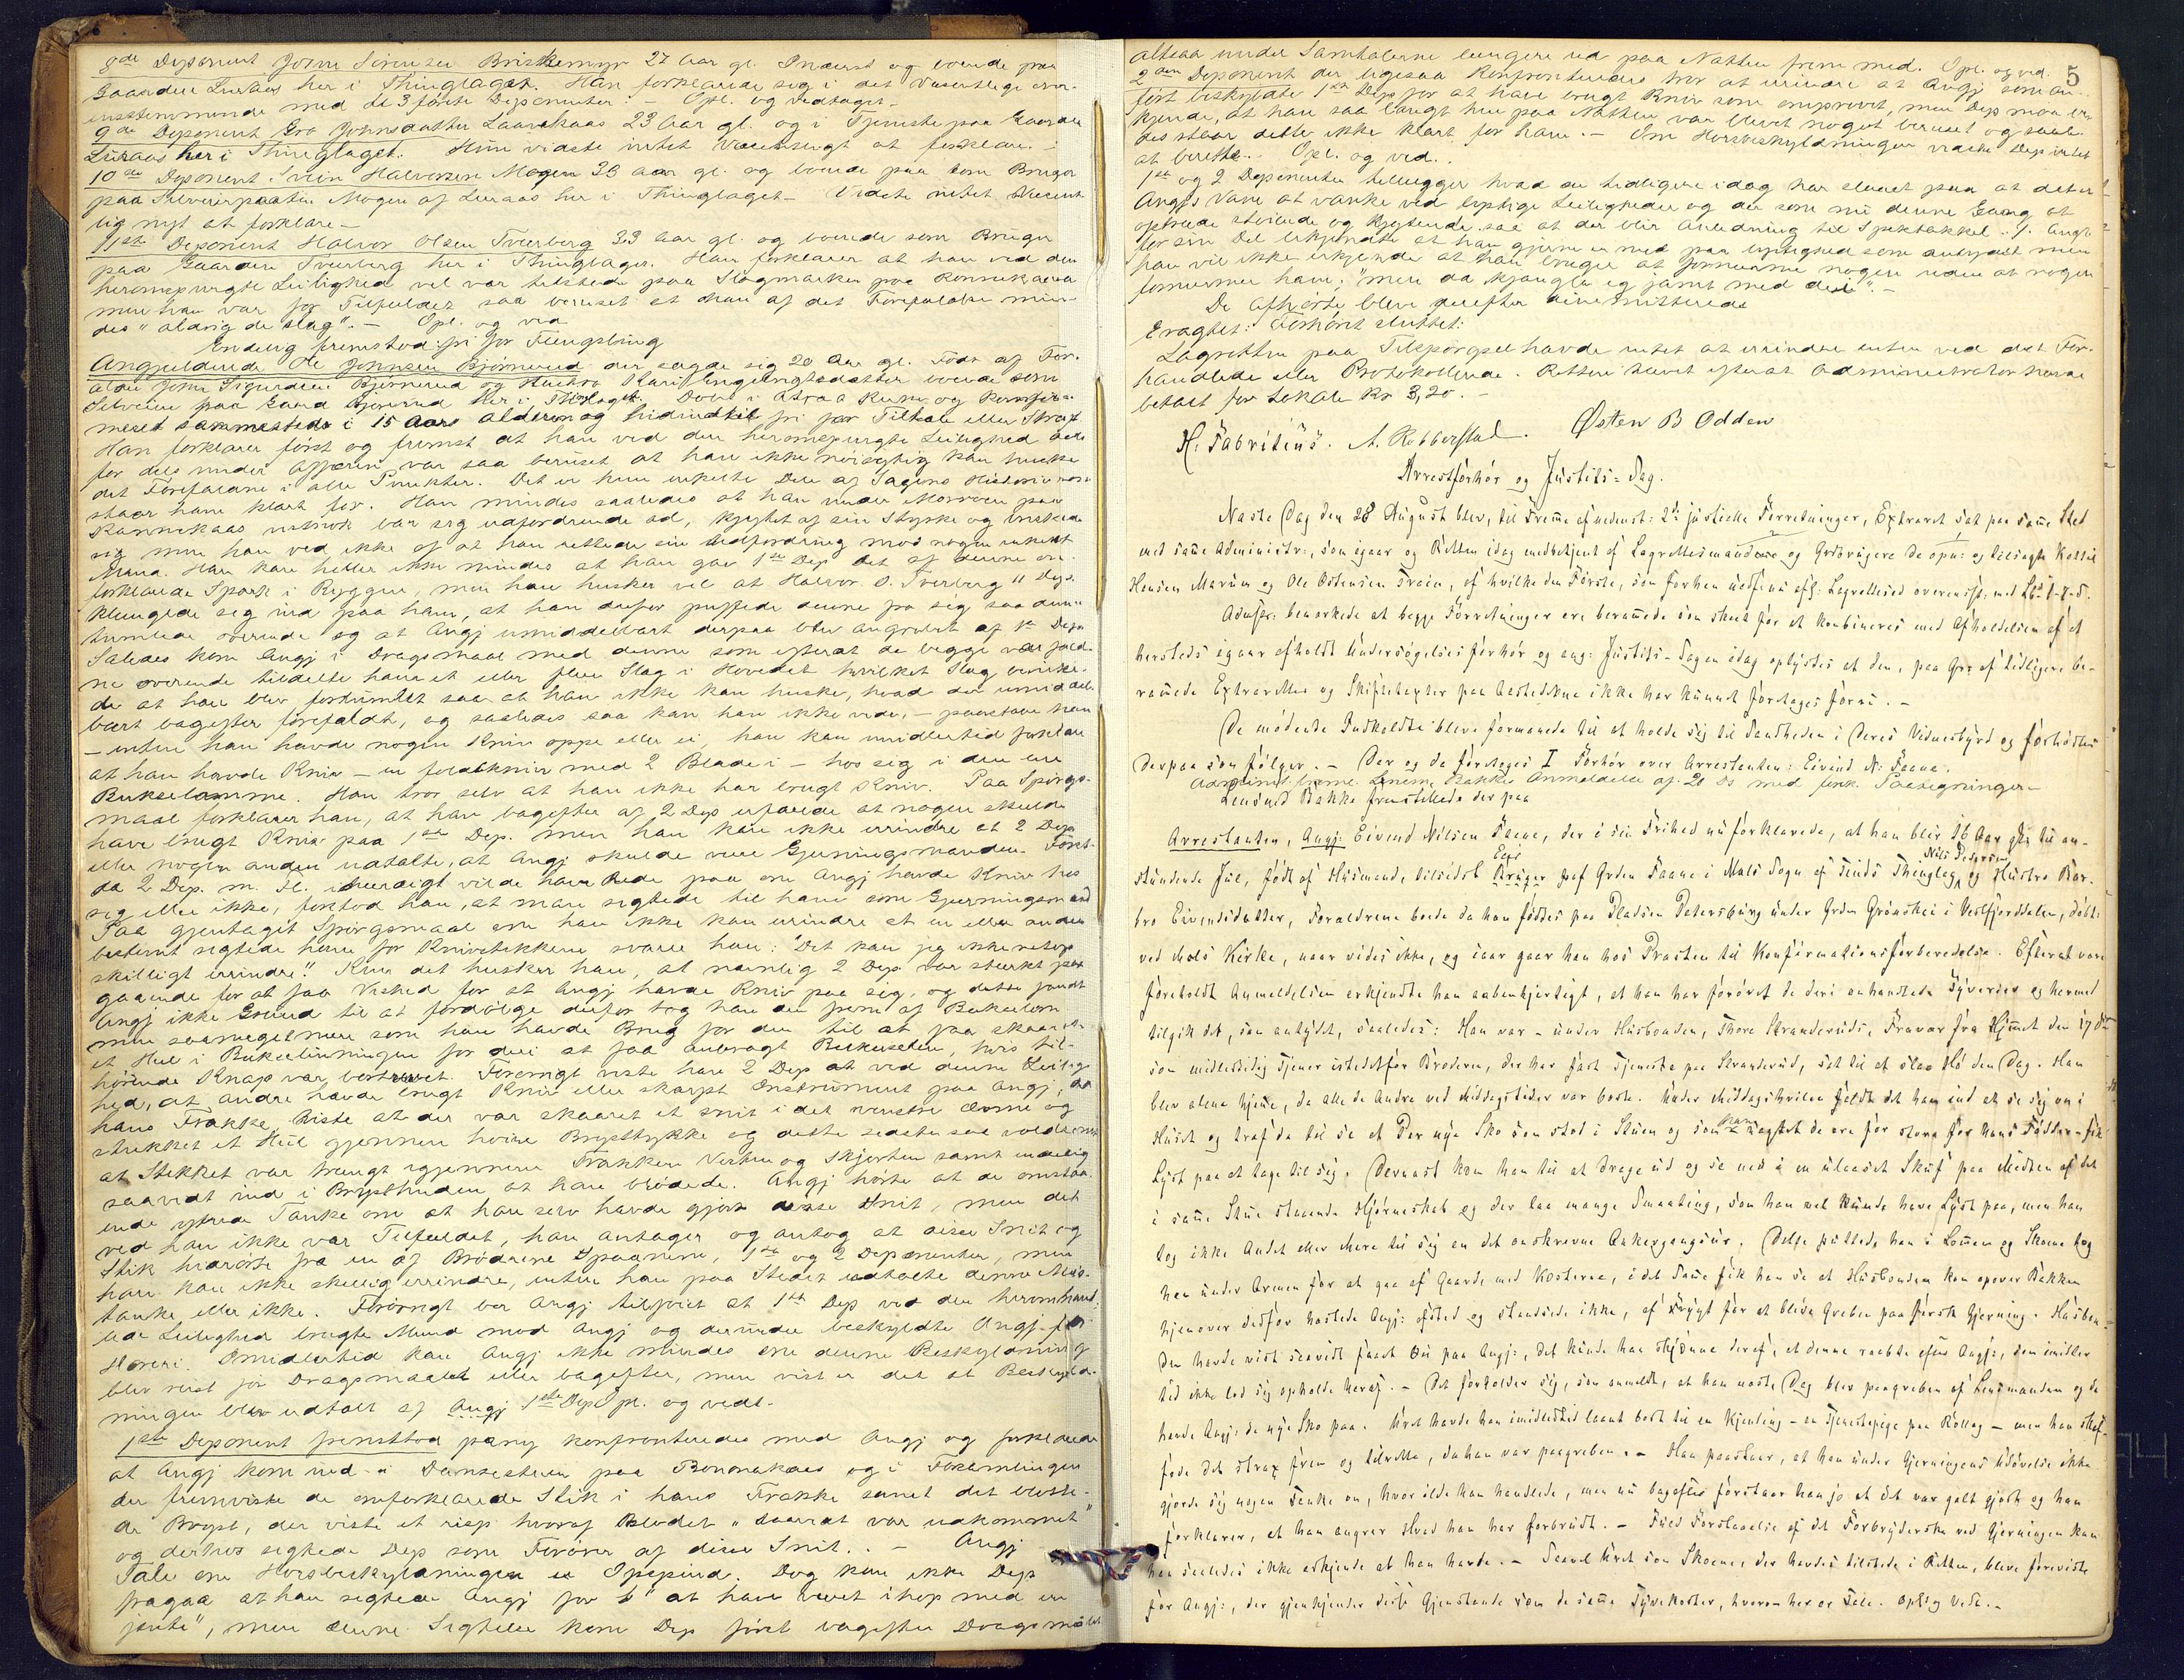 8de Deponent John Sørensen Briskemyr 27 Aar gl. Inderst og boende paa
Gaarden Luraas her i Thinglaget. Han forklarede sig i det Væsentlige over-
instemmende med de 3 første Deponenter: – Opl. og vedtaget.
9de Deponent Gro Johnsdatter Laavekaas 23 Aar gl. og i Tjeneste paa Gaarden
Luraas her i Thinglaget. Hun vidste intet Væsentligt at forklare. –
10de Deponent Svein Halvorsen Mogen 38 aar gl. og boende paa som Bruger
paa Mogen af Luraas her i Thinglaget – Vidste intet Væsent-
lig nyt at forklare –
11te Deponent Halvor Olsen Tverberg 33 Aar gl. og boende som Bruger
paa Gaarden Tverberg her i Thinglaget. Han forklarer at han ved den
heromspurgte Leilighed vel var tilstede paa Slagmarken paa
men han var for Tilfældet saa beruset at han af det Forefaldne min-
des "aldrig de slag". – Opl. og ved
Endelig fremstod fri for Fængsling
Angjældende Ole Johnsen Bjørnerud der sagde sig 20 Aar gl. Født af For-
ældre John Sigurdsen Bjørnerud og Hustro Kari Engelbregtsdatter boende som
Selveiere paa Gaard Bjørnerud her i Thinglaget. Døbt i Atraa Kirke og konfir-
meret sammesteds i 15 Aars alderen og hidindtil fri for Tiltale eller Straf
Han forklarer først og fremst at han ved den heromspurgte Leilighed baade
før dels under Affæren var saa beruset at han ikke nøiagtig kan huske
det Forefaldne i alle Punkter. Det er kun enkelte Dele af Sagens Historie som
staar ham klart for. Han mindes saaledes at han under Morroen paa
bar sig udfordrende ad, kjeftet af sin Styrke og ønskede
sig men han ved ikke af at han rettede sin Udfordring mod nogen enkelt
Mand. Han kan heller ikke mindes at han gav 1ste Dep det af denne om-
forklarede Spark i Ryggen, men han husker vel at Halvor O. Tverberg 11 Dep.
klængte sig ind paa ham, at han derfor puffede denne fra sig saa denne
tumlede overende og at Angj umiddelbart derpaa blev angrebet af 1ste Dep
Saledes kom Angj i Dragsmaal med denne som efterat de begge var fald-
ne overende tildelte ham et eller flere Slag i Hovedet hvilket Slag bevirke-
de at han blev fortumlet saa at han ikke kan huske, hvad der umiddel-
bart bagefter forefaldt, og saaledes saa kan han ikke vide, – paastaar han
– enten han havde nogen Kniv oppe eller ei, han kan imidlertid forklare
at han havde Kniv – en foldekniv med 2 Blade i – hos sig i den ene
Bukselomme. Han tror selv at han ikke har brugt Kniv. Paa Spørgs-
maal forklarer han, at han bagefter af 2 Dep erfarede at nogen skulde
have brugt Kniv paa 1ste Dep. men han kan ikke erindre at 2 Dep
eller nogen anden udtalte, at Angj skulde være Gjerningsmanden. Først
da 2 Dep. m. Fl. ihærdigt vilde have Rede paa om Angj havde Kniv hos
sig eller ikke, forstod han, at man sigtede til ham som Gjerningsmand
Paa gjentaget Spørgsmaal om han ikke kan erindre at en eller anden
bestemt sigtede ham for Knivstikkene svarer han: "Det kan jeg ikke
skilligt erindre." Kun det husker han, at nemlig 2 Dep var sterkt paa
gaaende for at faa Vished for at Angj havde Kniv paa sig, og dette fandt
Angj ikke Grund til at fordølge derfor tog han den frem af Bukselom-
men saameget mere som han havde Brug for den til at faa skaaret
et Hul i Bukselinningen for deri at faa anbragt Bukseselen, hvis til-
hørende Knap var bortrevet. Forøvrigt viste han 2 Dep at ved denne Leilig-
hed, at andre havde brugt Kniv eller skarpt Instrument paa Angj, da
hans Frakke viste at der var skaaret et snit i det venstre ærme og
stukket et Hul gjennem høire Bryststykke og dette sidste saa voldsomt
at Stikket var trængt igjennem Frakken Vesten og Skjorten samt endelig
saavidt ind i Brysthuden at han blødede. Angj hørte at de omstaa-
ende ytrede Tanke om at han selv havde gjort disse Snit, men det
ved han ikke var Tilfældet, han antager og antog at disse Snit og
Stik hidrørte fra en af Brødrene Spaanem, 1ste og 2 Deponenter, men
han kan ikke skillig erindre, enten han paa Stedet udtalte denne Mis-
tanke eller ikke. Forøvrigt bør Angj tilføiet at 1ste Dep ved den heromhand-
lede Leilighed brugte Mund mod Angj og derunder beskyldte Angj for
Horeri. Imidlertid kan Angj ikke mindes om denne Beskyldning
blev reist før Dragsmaalet eller bagefter, men vist er det at Beskyld-
ningen blev udtalt af Angj 1ste Dep Opl. og vedt.
1ste Deponent fremstod paany konfronteredes med Angj og forklarede
at Angj kom ind i Dansestuen paa og i Forsamlingen
der fremviste de omforklarede Stik i hans Frakke samt det blotte-
de Bryst, der viste et risp hvoraf Blodet "saavidt var udkommet"
og derhos sigtede Dep som Forøver af disse Snit. – Angj
Tale om Horsbeskyldningen er Opspind. Dog kan ikke Dep
fragaa at han sigtede Angj for "at have været ihop med en
jente", men denne Sigtelse kom Dep først bagefter Dragsmålet
5
altsaa under Samtalerne længere ud paa Natten frem med. Opl. og ved.
2den Deponent der ligesaa konfronteredes tror at erindre at Angj som an-
ført beskyldte 1ste Dep for at have brugt Kniv som omprøvet, men Dep maa er-
kjende, at han saa langt hen paa Natten var blevet noget beruset og saale-
des staar dette ikke klart for ham. – Om Horsbeskyldningen vidste Dep intet
at berette. – Opl. og ved.
1ste og 2 Deponenter tillægger hvad de tidligere idag har sluttet paa at det er
Angjs Vane at vanke ved lystige Leiligheder og der som nu denne Gang at
optræde støiende og kjeftende saa at der blir Anledning til Spektakkel. – Angj
for sin Del erkjendte at han gjerne er med paa lystighed som antydet men
han vil ikke erkjende at han bruger at fornærme nogen uden at nogen
fornærmer ham; "men da kjangla eg jamt med dei". –
De afhørte bleve derefter dimitterede
Eragtet: Forhøret sluttet:
Lagretten paa Tilspørgsel havde intet at erindre enten ved det For-
handlede eller Protokollerede. Retten hævet efterat Administrator havde
betalt for Lokale Kr 3,20. –
H. Fabritius. A. Robberstad. Østen B Odden
Arrestforhør og Justits-Sag.
Næste Dag den 28 August blev, til Fremme af nedenst: 2de justielle Forretninger, Extraret sat paa samme Sted
med samme Administr:, som igaar og Retten idag medbetjent af Lagrettesmændene og Grdbrugere de opn: og tilsagte Kettil
Hansen Marum og Ole Østensen Traen, af hvilke den Første, som forhen afl: Lagrettesed overensst: med
Admstr: bemærkede at begge Forretninger ere berammede som skeet for at kombineres med Afholdelsen af et
hersteds igaar afholdt Undersøgelsesforhør og ang: Justits-Sagen idag oplystes at den, paa Gr: af tidligere be-
rammede Extraretter og Skiftetægter paa ikke har kunnet foretages førri. –
De mødende Indkaldte bleve formanede til at holde sig til Sandheden i Deres Vidnesbyrd og forholdtes
derpaa som følger. – Der og da foretages I Forhør over Arrestanten: Eivind N: Faane.
Administ: fremlagde Lensm. Bakkes Anmeldelse af 21 ds med fork Paategninger –
Lensmd Bakke fremstillede der paa
Arrestanten, Angj: Eivind Nilsen Faane, der i sin Frihed nu forklarede, at han blir 16 Aar gl til an-
stundende Jul, født af Husmand, tilsidst Eier Bruger paf Grden Faane i Mæls Sogn af Tinds Thinglag, Nils Pedersen og Hustro Bar-
bro Eivindsdatter, Forældrene boede da han fødtes paa Pladsen Petersburg under Grden Grønskei i Vestfjorddalen, døbt:
ved Mæls Kirke, naar vides ikke, og iaar gaar han hos Præsten til Konfirmationsforberedelse. Efterat være
foreholdt Anmeldelsen erkjendte han aabenhjertigt, at han har forøvet de deri omhandlede Tyverier og hermed
tilgik det, som antydt, saaledes: Han var – under Husbonden, Thore Stranderuds, Fravær fra Hjemmet den 17 ds
som midlertidig Tjener istedetfor Broderen, der har fast Tjeneste paa Stranderud, sat til at slaa Hø den Dag. Han
blev alene hjemme, da alle de Andre ved Middagstider var borte. Under Middagshvilen faldt det ham ind at se sig om i
Huset og traf da til se et Par nye Sko som stod i Stuen og som han uagtet de ere for store for hans Fødder – fik
Lyst paa at tage til sig. Dernæst kom han til at drage ud og se ned i en ulaaset Skuf paa Midten af det
i samme Stue staaende Hjørneskab og der laa mange Smaating, som han vel kunde have Lyst paa, men han
tog ikke Andet eller Mere til sig en det omskrevne Ankergangsur. Dette puttede han i Lommen og Skoene tog
han under Armen for at gaa af Gaarde med Kosterne, i det Samme fik han se at Husbonden kom opover Bakken
hjemover derfor hastede Angj: afsted og standsede ikke, af Frygt for at blive Greben paa fersk Gjerning. Husbon-
den havde nist saavidt faaet Øie paa Angj:, det kunde han skjønne deraf, at denne raabte efter Angj:, som imidler
tid ikke lod sig opholde heraf. – Det forholder sig, som anmeldt, at han næste Dag blev paagreben af Lensmanden og da
havde Angj: de nye Sko paa. Uret havde han imidlertid laant bort til en Kjenling – en Tjenestepige paa Rollag – men han skaf-
fede det strax frem og tilrette, da han var paagreben. – Han paastaar, at han under Gjerningens Udøvelse ikke
gjorde sig nogen Tanke om, hvor ilde han handlede, men nu bagefter forstaar han jo at det var galt gjort og han
forklarer, at han angrer Hvad han har forbrudt. – Fuld Forstaaelse af det Forbryderske ved Gjerningen kan
han saaledes ikke erkjende at han havde. – Saavel Uret som Skoene, der havdes tilstede i Retten, bleve foreviste
for Angj:, der gjenkjender disse Gjenstande som de samme Tyvekoster, hvorom her er Tale. Opl: og Vedt. –